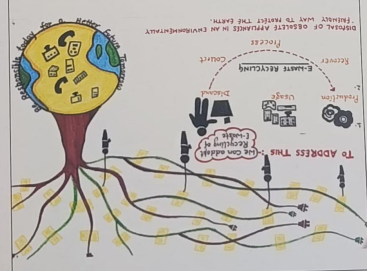 TO ADDRESS THIS :-
We can addopt
Recycling of
E-waste
1. Production
Usage
Discard
2.
E-WASTE RECYCLING
Recover
Process
Collect
DISPOSAL OF OBSOLETE APPLIANCES IN AN ENVIRONMENTALLY
FRIENDLY WAY TO PROTECT THE EARTH.
Responsible today for a Better Future Tomorrow